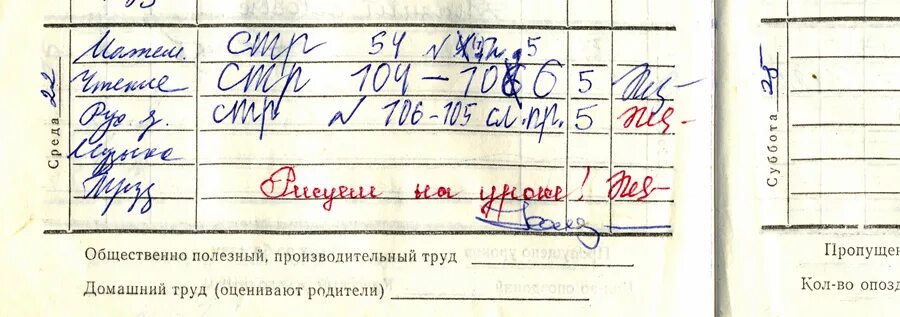 Среда 22
Матем. стр 54 №
Чтение стр 104-106 5
Рус. я. стр № 106-105 сл.пр. 5
Музыка
Труд Рисуем на уроке!
Общественно полезный, производительный труд
Домашний труд (оценивают родители)
Суббота 25
Пропуще
Кол-во опозд